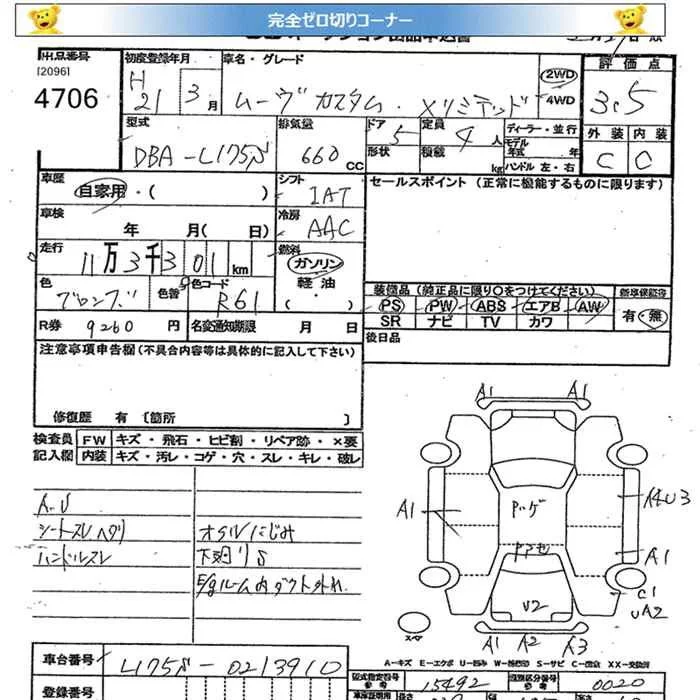 完全ゼロ切りコーナー
出品番号
[2096]
4706
初度登録年月
H 21年 3月
車名・グレード
ムーヴカスタム・Xリミテッド
2WD
4WD
評価点
3.5
外装 内装
C C
型式
DBA-L175S
排気量
660 CC
ドア 5
形状
定員 4人
積載 kg
ディーラー・並行
モデル年式 年
ハンドル 左・右
車歴
自家用・( )
シフト
IAT
セールスポイント (正常に機能するものに限ります)
車検
年 月( 日)
冷房
AAC
走行
11万3千301km
燃料
ガソリン
軽油
・( )
色
ブロンズ
色替
色コード
R61
装備品 (純正品に限り○をつけてください)
PS PW ABS エアB AW
SR ナビ TV カワ
新車保証書
有・無
R券 9260円
名変通知期限 月 日
後日品
注意事項申告欄 (不具合内容等は具体的に記入して下さい)
修復歴 有 〔箇所 〕
検査員記入欄
FW キズ・飛石・ヒビ割・リペア跡・×要
内装 キズ・汚レ・コゲ・穴・スレ・キレ・破レ
A.U
シートスレヘタリ
ハンドルスレ
オイルにじみ
下廻りS
E/gルーム内ダクト外れ
A1 A1
A1
Pハゲ
A4U3
A1
C1
UA2
U2
A1 A2 A3
スペア
A-キズ E-エクボ U-凹み W-補修跡 S-サビ C-腐食 XX-交換済
車台番号
L175S-0213910
型式指定番号
参考
15492
類別区分番号
参考
0020
登録番号